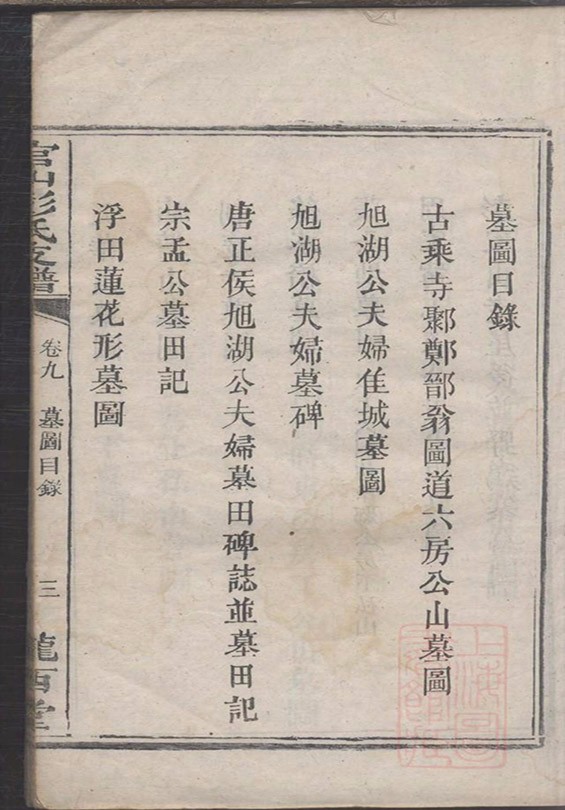 墓圖目錄
古乘寺鄹鄭鄑翁圖道六房公山墓圖
旭湖公夫婦佳城墓圖
旭湖公夫婦墓碑
唐正侯旭湖公夫婦墓田碑誌並墓田記
宗孟公墓田記
浮田蓮花形墓圖
官山彭氏支譜
卷九 墓圖目錄
三
隴西堂